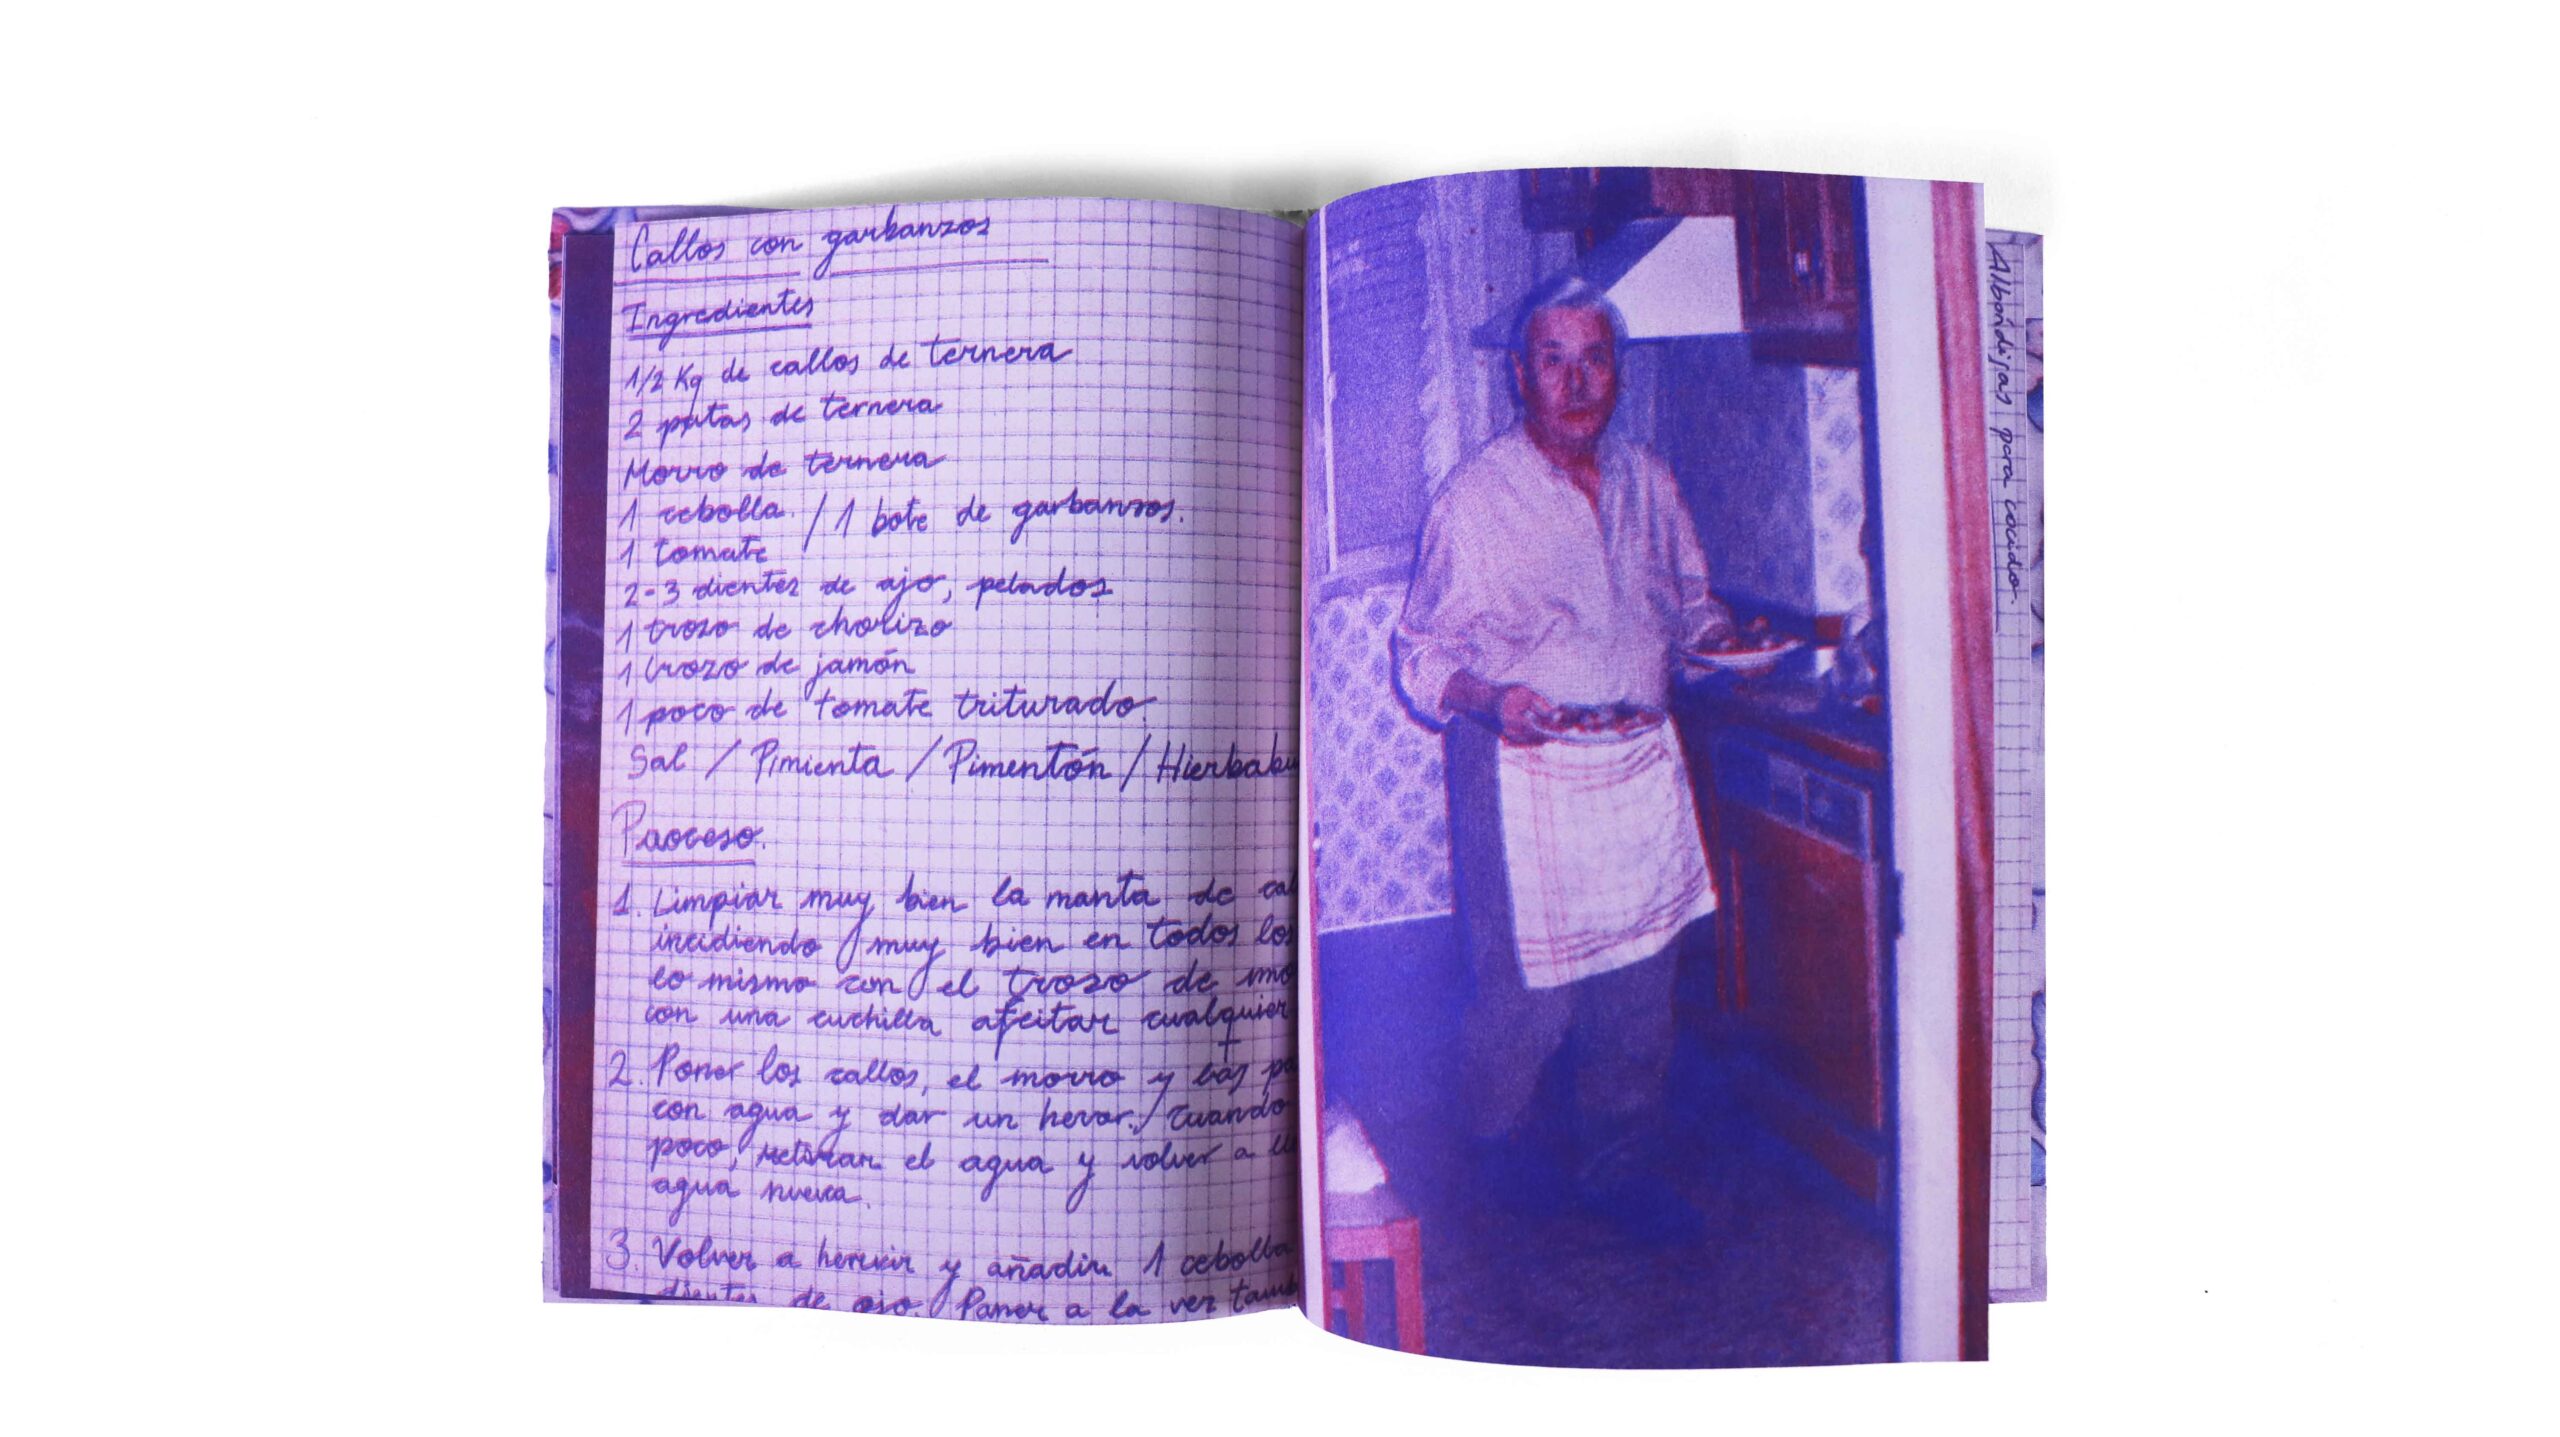 Callos con garbanzos
Ingredientes
1/2 Kg de callos de ternera
2 patas de ternera
Morro de ternera
1 cebolla. / 1 bote de garbanzos.
1 tomate
2-3 dientes de ajo, pelados
1 trozo de chorizo
1 trozo de jamón
1 poco de tomate triturado.
Sal / Pimienta / Pimentón / Hierbabu
Proceso.
1. Limpiar muy bien la manta de cal
incidiendo muy bien en todos los
lo mismo con el trozo de mo
con una cuchilla afeitar cualquier
2. Poner los callos, el morro y las pa
con agua y dar un hervor. / Cuando
poco, retirar el agua y volver a ll
agua nueva.
3. Volver a hervir y añadir 1 cebolla
dientes de ajo. Poner a la vez tamb
Albóndijas para cocido.